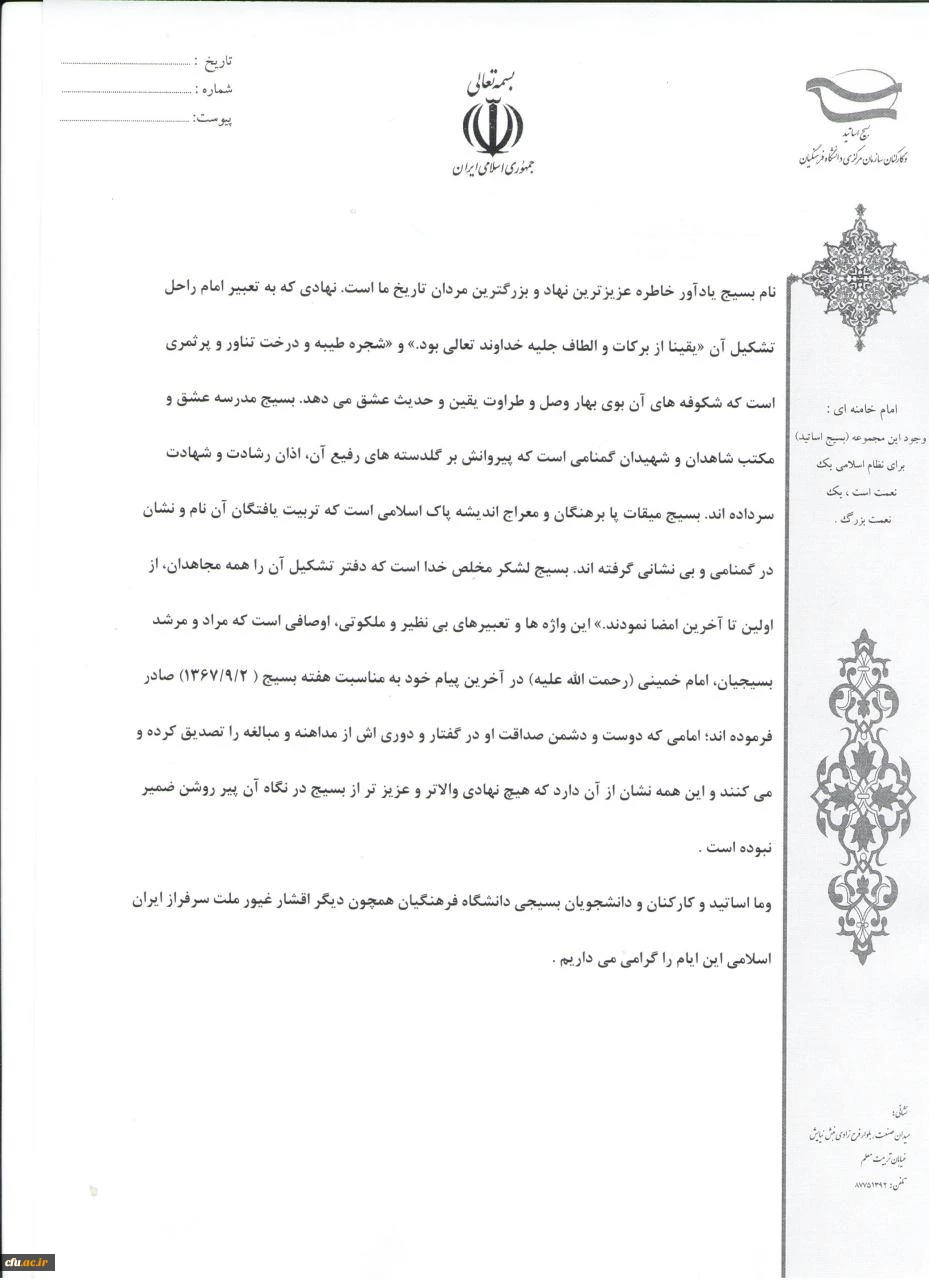 بسمه تعالی
جمهوری اسلامی ایران
تاریخ : ........................................
شماره : ........................................
پیوست: ........................................
بسیج اساتید
وکارکنان سازمان مرکزی دانشگاه فرهنگیان
نام بسیج یادآور خاطره عزیزترین نهاد و بزرگترین مردان تاریخ ما است. نهادی که به تعبیر امام راحل
تشکیل آن «یقینا از برکات و الطاف جلیه خداوند تعالی بود.» و «شجره طیبه و درخت تناور و پرثمری
است که شکوفه های آن بوی بهار وصل و طراوت یقین و حدیث عشق می دهد. بسیج مدرسه عشق و
مکتب شاهدان و شهیدان گمنامی است که پیروانش بر گلدسته های رفیع آن، اذان رشادت و شهادت
سرداده اند. بسیج میقات پا برهنگان و معراج اندیشه پاک اسلامی است که تربیت یافتگان آن نام و نشان
در گمنامی و بی نشانی گرفته اند. بسیج لشکر مخلص خدا است که دفتر تشکیل آن را همه مجاهدان، از
اولین تا آخرین امضا نمودند.» این واژه ها و تعبیرهای بی نظیر و ملکوتی، اوصافی است که مراد و مرشد
بسیجیان، امام خمینی (رحمت الله علیه) در آخرین پیام خود به مناسبت هفته بسیج ( ۱۳۶۷/۹/۲) صادر
فرموده اند؛ امامی که دوست و دشمن صداقت او در گفتار و دوری اش از مداهنه و مبالغه را تصدیق کرده و
می کنند و این همه نشان از آن دارد که هیچ نهادی والاتر و عزیز تر از بسیج در نگاه آن پیر روشن ضمیر
نبوده است .
وما اساتید و کارکنان و دانشجویان بسیجی دانشگاه فرهنگیان همچون دیگر اقشار غیور ملت سرفراز ایران
اسلامی این ایام را گرامی می داریم .
امام خامنه ای :
وجود این مجموعه (بسیج اساتید)
برای نظام اسلامی یک
نعمت است ، یک
نعمت بزرگ .
نشانی:
میدان صنعت، بلوار فرح زادی نبش نیایش
خیابان تربیت معلم
تلفن: ۸۷۷۵۱۳۹۲
cfu.ac.ir